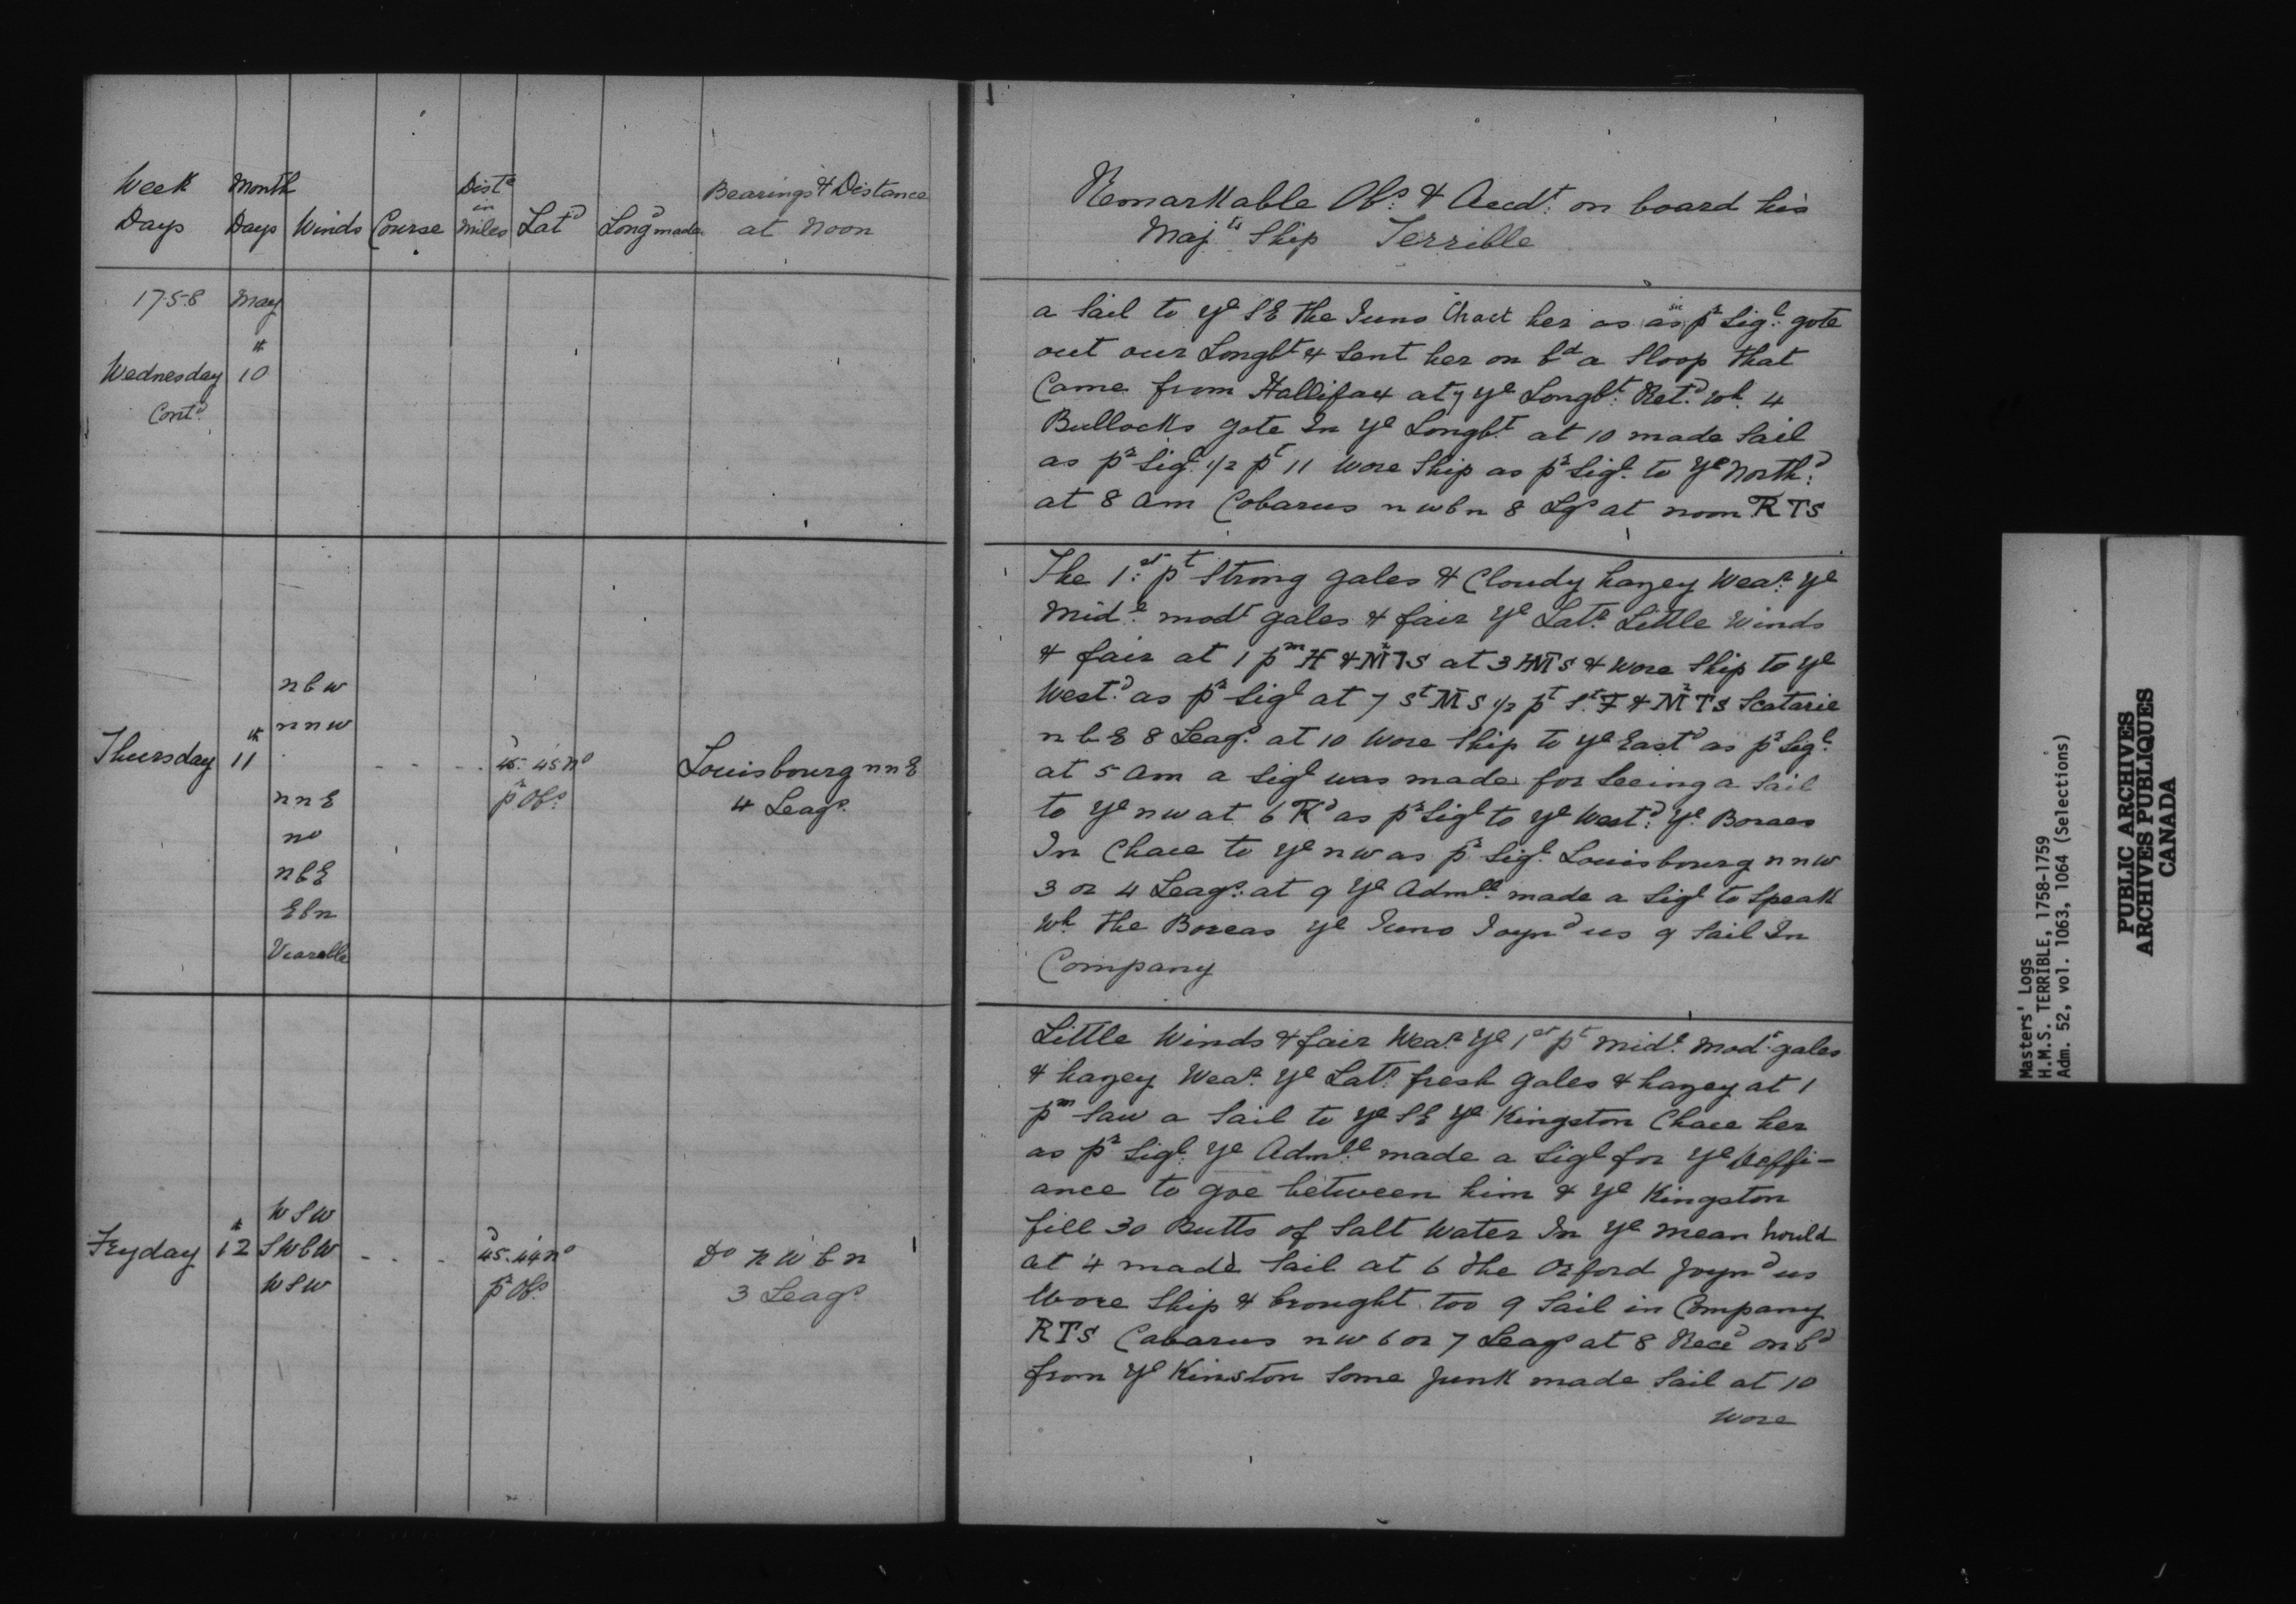 Week Days
Month Days
Winds
Course
Distce in miles
Latd
Longd made
Bearings & Distance at Noon
1758 May
Wednesday 10th
Contd
Thursday 11th
n b w
n n w
n n E
no
n b E
E b n
Vearable
45d. 45' no
pr Obs.
Louisbourg n n E
4 Leags.
Fryday 12th
W S W
S W b W
W S W
45d. 44' no
pr Obs.
Do n W b n
3 Leags.
Remarkable Obs. & Accdt. on board his
Majts Ship Terrible
a Sail to ye S E the Juno Chact her as as sic pr Sigl. gote
out our Longbt & Sent her on bd a Sloop that
Came from Hallifax at 7 ye Longbt. Retd. wh. 4
Bullocks gote In ye Longbt. at 10 made Sail
as pr Sigl. 1/2 pt 11 Wore Ship as pr Sigl. to ye Northd.
at 8 am Cobarus n w b n 8 Lgs at noon RTS
The 1st: pt Strong gales & Cloudy hazey Wear. ye
Midl. modt gales & fair ye Latr. Little Winds
& fair at 1 pm H & Mz TS at 3 HMTS & wore Ship to ye
Westd. as pr Sigl at 7 St MS 1/2 pt St. F & Mz TS Scatarie
n b E 8 Leags. at 10 Wore Ship to ye Eastd as pr Sigl.
at 5 am a Sigl was made for Seeing a Sail
to ye n w at 6 Tkd as pr Sigl to ye Westd: ye Boraes
In Chace to ye n w as pr Sigl. Louisbourg n n w
3 or 4 Leags: at 9 ye Admll. made a Sigl to Speak
Wh the Boreas ye Juno Joynd us 9 Sail In
Company
Little Winds & fair Wear. ye 1st pt midl. Modt. gales
& hazey Wear. ye Latr. fresh gales & hazey at 1
pm Saw a Sail to ye S E ye Kingston Chace her
as pr Sigl. ye Admll. made a Sigl for ye Deffi-
ance to goe between him & ye Kingston
fill 30 Butts of Salt Water In ye mean hould
at 4 made Sail at 6 the Orford Joynd us
Wore Ship & brought too 9 Sail in Company
RTS Cabarus n w 6 or 7 Leags at 8 Reced on bd
from ye Kinston Some Junk made Sail at 10
Wore
Masters' Logs
H.M.S. TERRIBLE, 1758-1759
Adm. 52, vol. 1063, 1064 (Selections)
PUBLIC ARCHIVES
ARCHIVES PUBLIQUES
CANADA